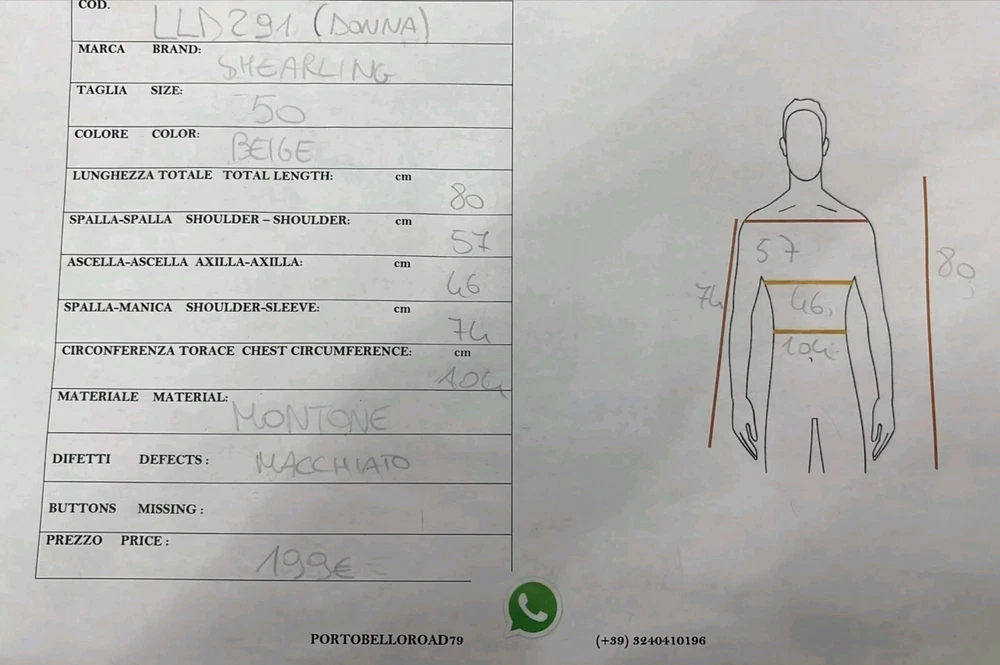 COD. LLD291 (DONNA)
MARCA BRAND: SHEARLING
TAGLIA SIZE: 50
COLORE COLOR: BEIGE
LUNGHEZZA TOTALE TOTAL LENGTH: cm 80
SPALLA-SPALLA SHOULDER – SHOULDER: cm 57
ASCELLA-ASCELLA AXILLA-AXILLA: cm 46
SPALLA-MANICA SHOULDER-SLEEVE: cm 74
CIRCONFERENZA TORACE CHEST CIRCUMFERENCE: cm 104
MATERIALE MATERIAL: MONTONE
DIFETTI DEFECTS : MACCHIATO
BUTTONS MISSING :
PREZZO PRICE : 199€
57
80
74
46
104
PORTOBELLOROAD79 (+39) 3240410196